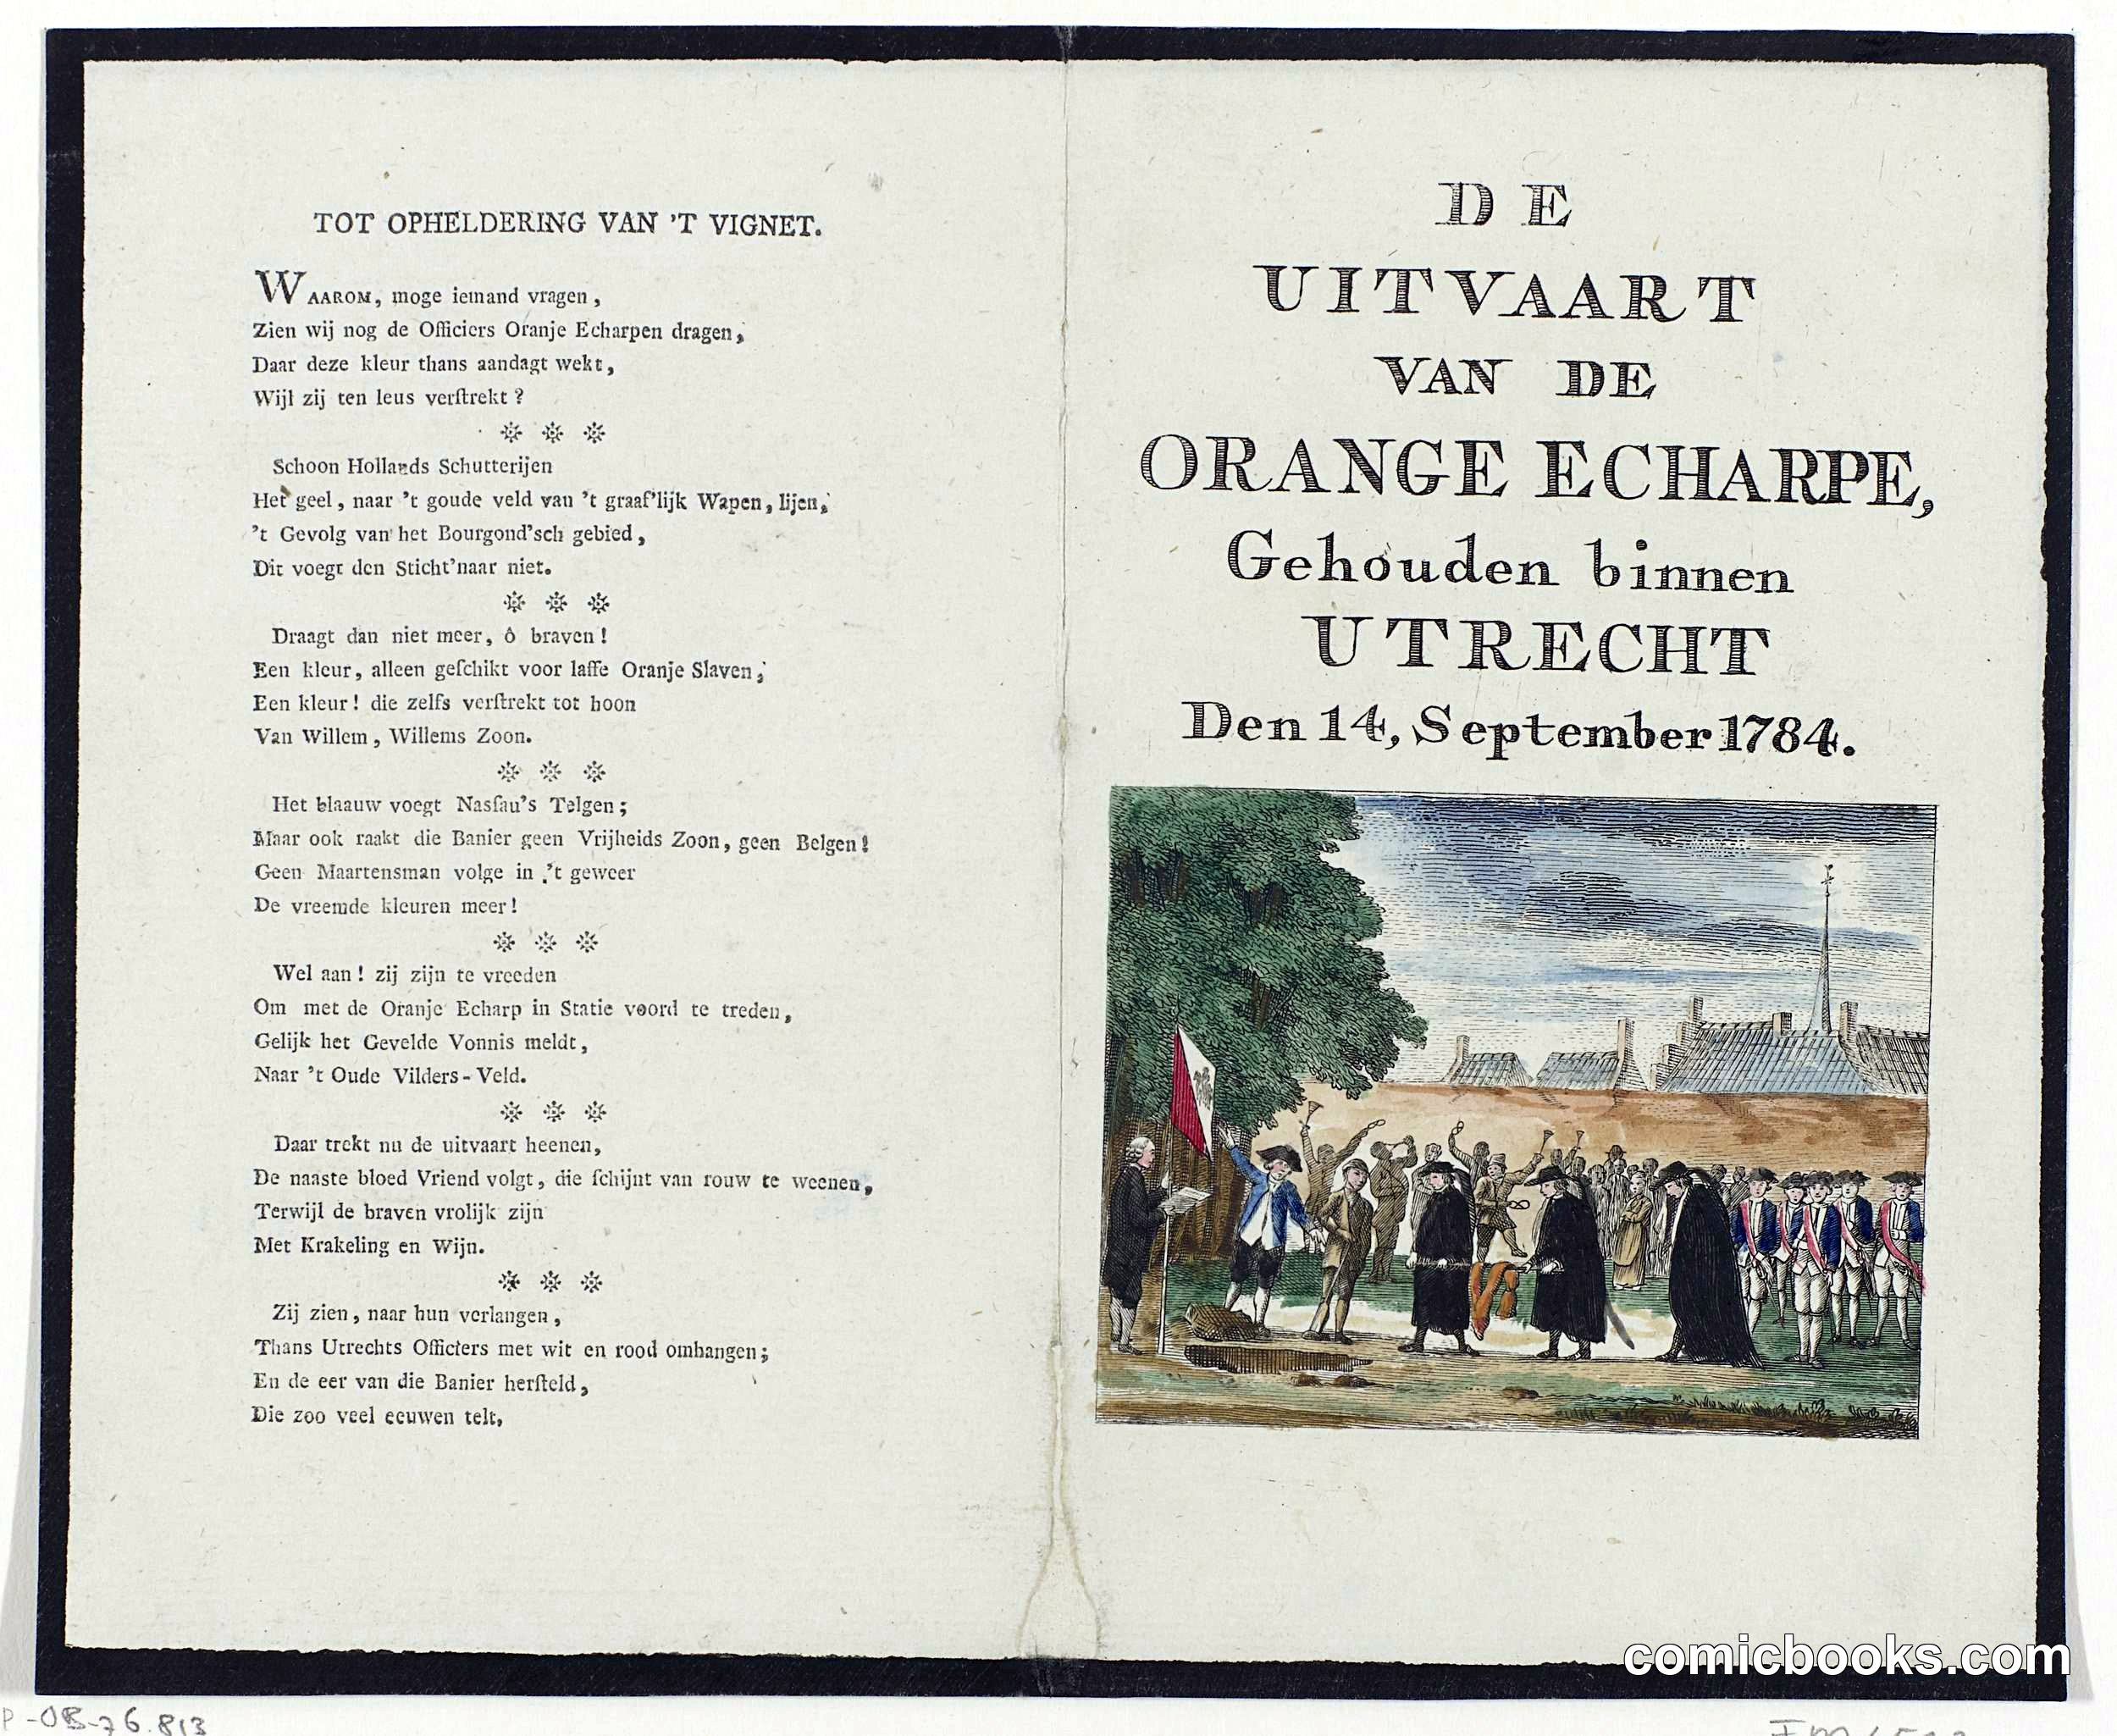 TOT OPHELDERING VAN 'T VIGNET.
WAAROM, moge iemand vragen,
Zien wij nog de Officiers Oranje Echarpen dragen,
Daar deze kleur thans aandagt wekt,
Wijl zij ten leus verſtrekt?
Schoon Hollands Schutterijen
Het geel, naar 't goude veld van 't graaf'lijk Wapen, lijen,
't Gevolg van het Bourgond'sch gebied,
Dit voegt den Sticht'naar niet.
Draagt dan niet meer, ô braven!
Een kleur, alleen geſchikt voor laffe Oranje Slaven,
Een kleur! die zelfs verſtrekt tot hoon
Van Willem, Willems Zoon.
Het blaauw voegt Nasſau's Telgen;
Maar ook raakt die Banier geen Vrijheids Zoon, geen Belgen!
Geen Maartensman volge in 't geweer
De vreemde kleuren meer!
Wel aan! zij zijn te vreeden
Om met de Oranje Echarp in Statie voord te treden,
Gelijk het Gevelde Vonnis meldt,
Naar 't Oude Vilders-Veld.
Daar trekt nu de uitvaart heenen,
De naaste bloed Vriend volgt, die ſchijnt van rouw te weenen,
Terwijl de braven vrolijk zijn
Met Krakeling en Wijn.
Zij zien, naar hun verlangen,
Thans Utrechts Officiers met wit en rood omhangen;
En de eer van die Banier herſteld,
Die zoo veel eeuwen telt,
DE
UITVAART
VAN DE
ORANGE ECHARPE,
Gehouden binnen
UTRECHT
Den 14, September 1784.
comicbooks.com
P-OB-76.813